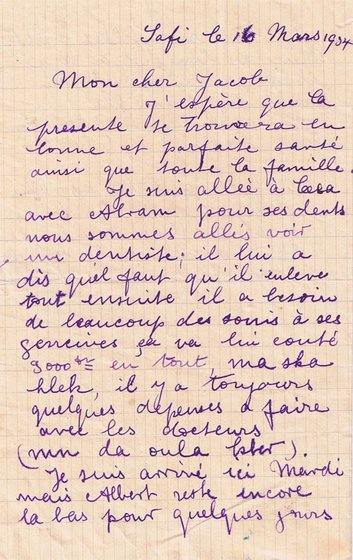 Safi le 16 Mars 1934
Mon cher Jacob
J'espère que la
presente te trouvera en
bonne et parfaite santé
ainsi que toute la famille.
Je suis allée à Casa
avec Abram pour ses dents
nous sommes allés voir
un dentiste; il lui a
dis quel faut qu'il enleve
tout ensuite il a besoin
de beaucoup des soins à ses
gencives ça va lui couté
3000 frs en tout, ma ska
hlek, il y a toujours
quelques depenses a faire
avec les docteurs
(mn da oula ).
Je suis arrivé ici Mardi
mais Albert reste encore
la bas pour quelques jours